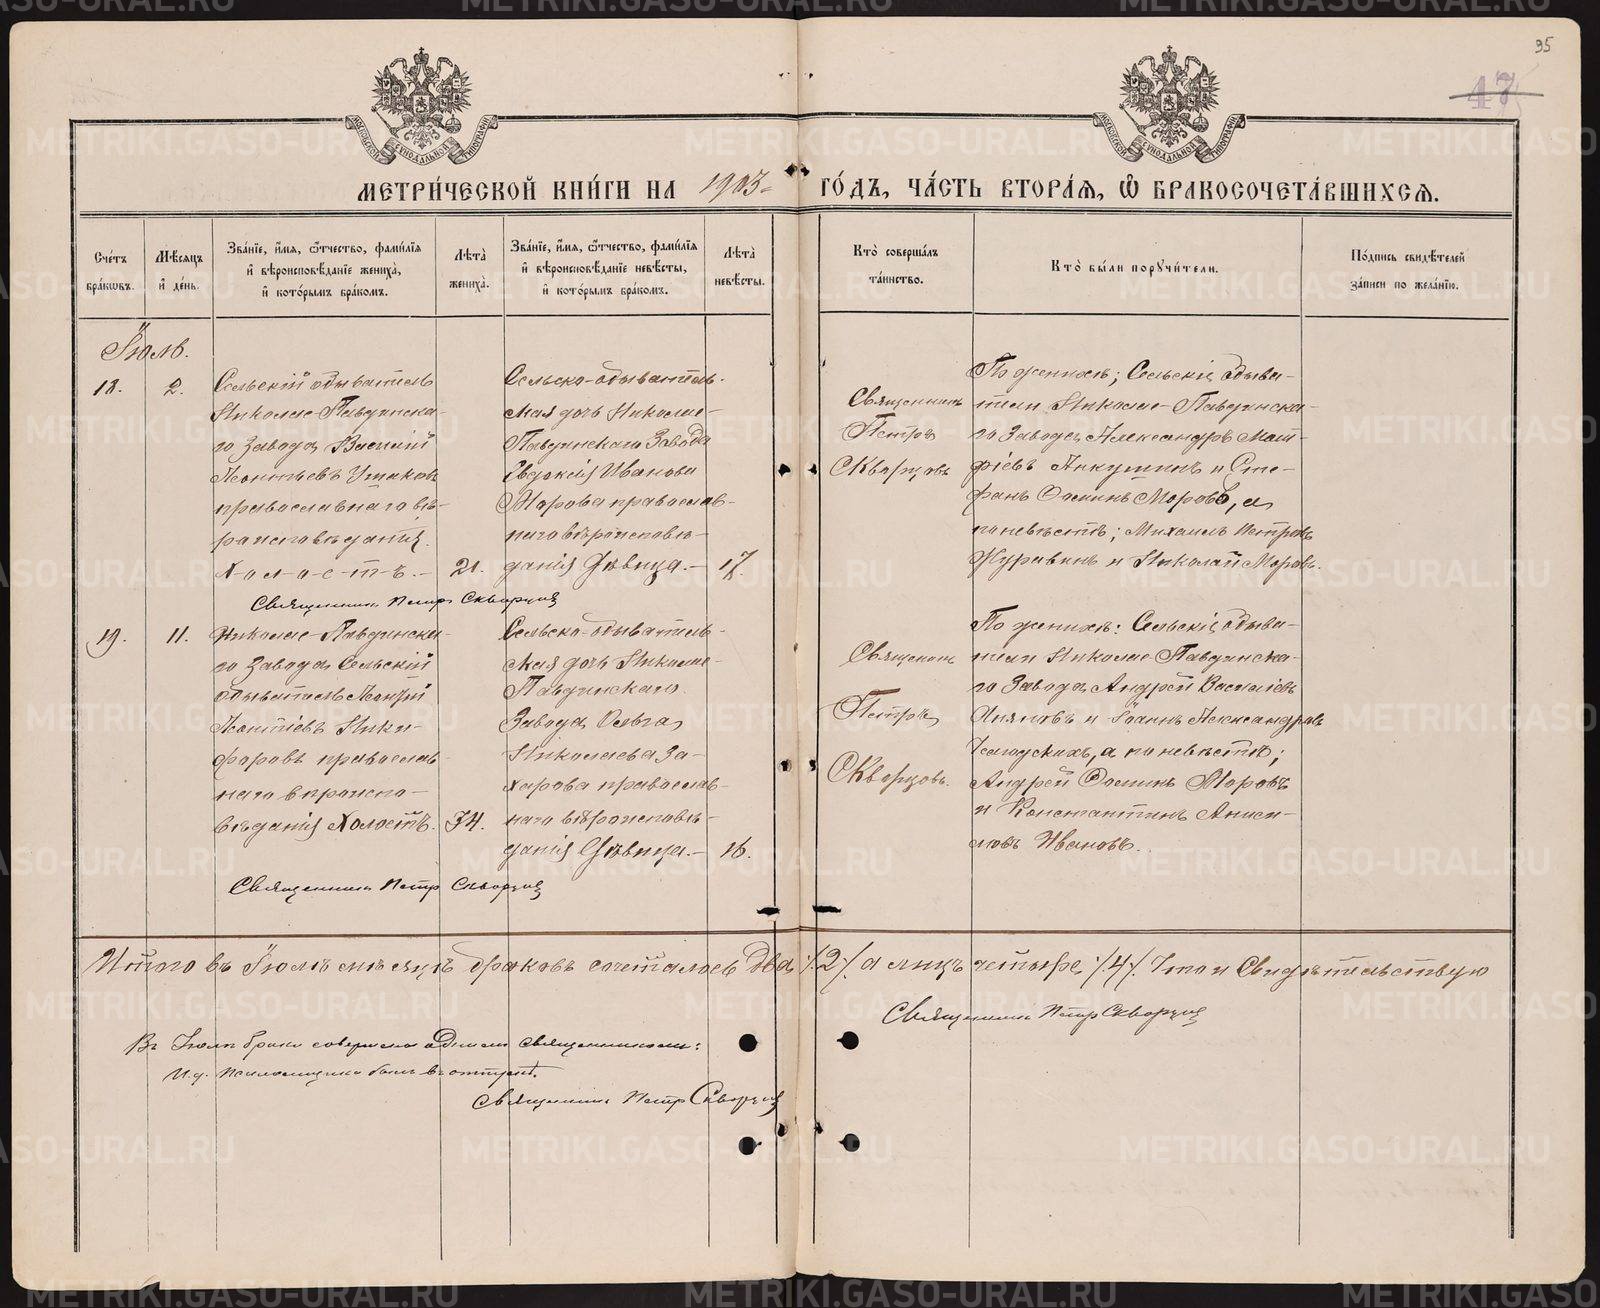 95
47
МОСКОВСКОЙ СѴНОДАЛЬНОЙ ТИПОГРАФІИ
МОСКОВСКОЙ СѴНОДАЛЬНОЙ ТИПОГРАФІИ
МЕТРИ́ЧЕСКОЙ КНИ́ГИ НА 1903 ГО́ДЪ, ЧА́СТЬ ВТОРА́Я, Ѡ БРАКОСОЧЕТА́ВШИХСЯ.
Сче́тъ
бра́кѡвъ.
Мѣ́сяцъ
и҆ де́нь.
Зва́нїе, и҆́мя, ѻ҆́тчество, фами́лїя
и҆ вѣроисповѣ́данїе жениха̀,
и҆ кото́рымъ бра́комъ.
Лѣта̀
жениха̀.
Зва́нїе, и҆́мя, ѻ҆́тчество, фами́лїя
и҆ вѣроисповѣ́данїе невѣ́сты,
и҆ кото́рымъ бра́комъ.
Лѣта̀
невѣ́сты.
Кто̀ соверша́лъ
та́инство.
Кто̀ бы́ли порꙋчи́тели.
По́дпись свидѣ́телей
за́писи по жела́нїю.
Іюль.
18.
2.
Сельскій обыватель
Николае-Павдинска-
го завода Василій
Леонтьевъ Ушаковъ
православнаго вѣ-
роисповѣданія.
Х-о-л-о-с-т-ъ.-
21.
Сельско-обыватель-
ская дочь Николае-
Павдинскаго завода
Евдокія Иванова
Морова православ-
наго вѣроисповѣ-
данія дѣвица.-
17.
Священникъ
Петръ
Скворцовъ
По женихѣ; Сельскіе обыва-
тели Николае-Павдинска-
го завода Александръ Мат-
фіевъ и Сте-
фанъ Фоминъ Моровъ, а
по невѣстѣ; Михаилъ Петровъ
Журавинъ и Николай Моровъ.
Священникъ Петръ Скворцовъ
19.
11.
Николае-Павдинска-
го завода Сельскій
обыватель Леонтій
Леонтіевъ Ники-
форовъ православ-
наго вѣроиспо-
вѣданія холостъ.
34.
Сельско-обыватель-
ская дочь Николае-
Павдинскаго
завода Ольга
Николаева За-
харова православ-
наго вѣроисповѣ-
данія дѣвица.-
16.
Священникъ
Петръ
Скворцовъ.
По женихѣ: Сельскіе обыва-
тели Николае-Павдинска-
го завода Андрей Василіевъ
и Іоаннъ Александровъ
а по невѣстѣ;
Андрей Фоминъ Моровъ
и Константинъ Аниси-
мовъ Ивановъ.
Священникъ Петръ Скворцовъ
Итого въ Іюлѣ мѣсяцѣ браковъ сочеталось два ./.2./. а лицъ четыре ./.4./. Что и Свидѣтельствую
Священникъ Петръ Скворцовъ
Въ Іюлѣ браки совершены однимъ священникомъ:
И.д. псаломщика былъ въ
Священникъ Петръ Скворцовъ
METRIKI.GASO-URAL.RU